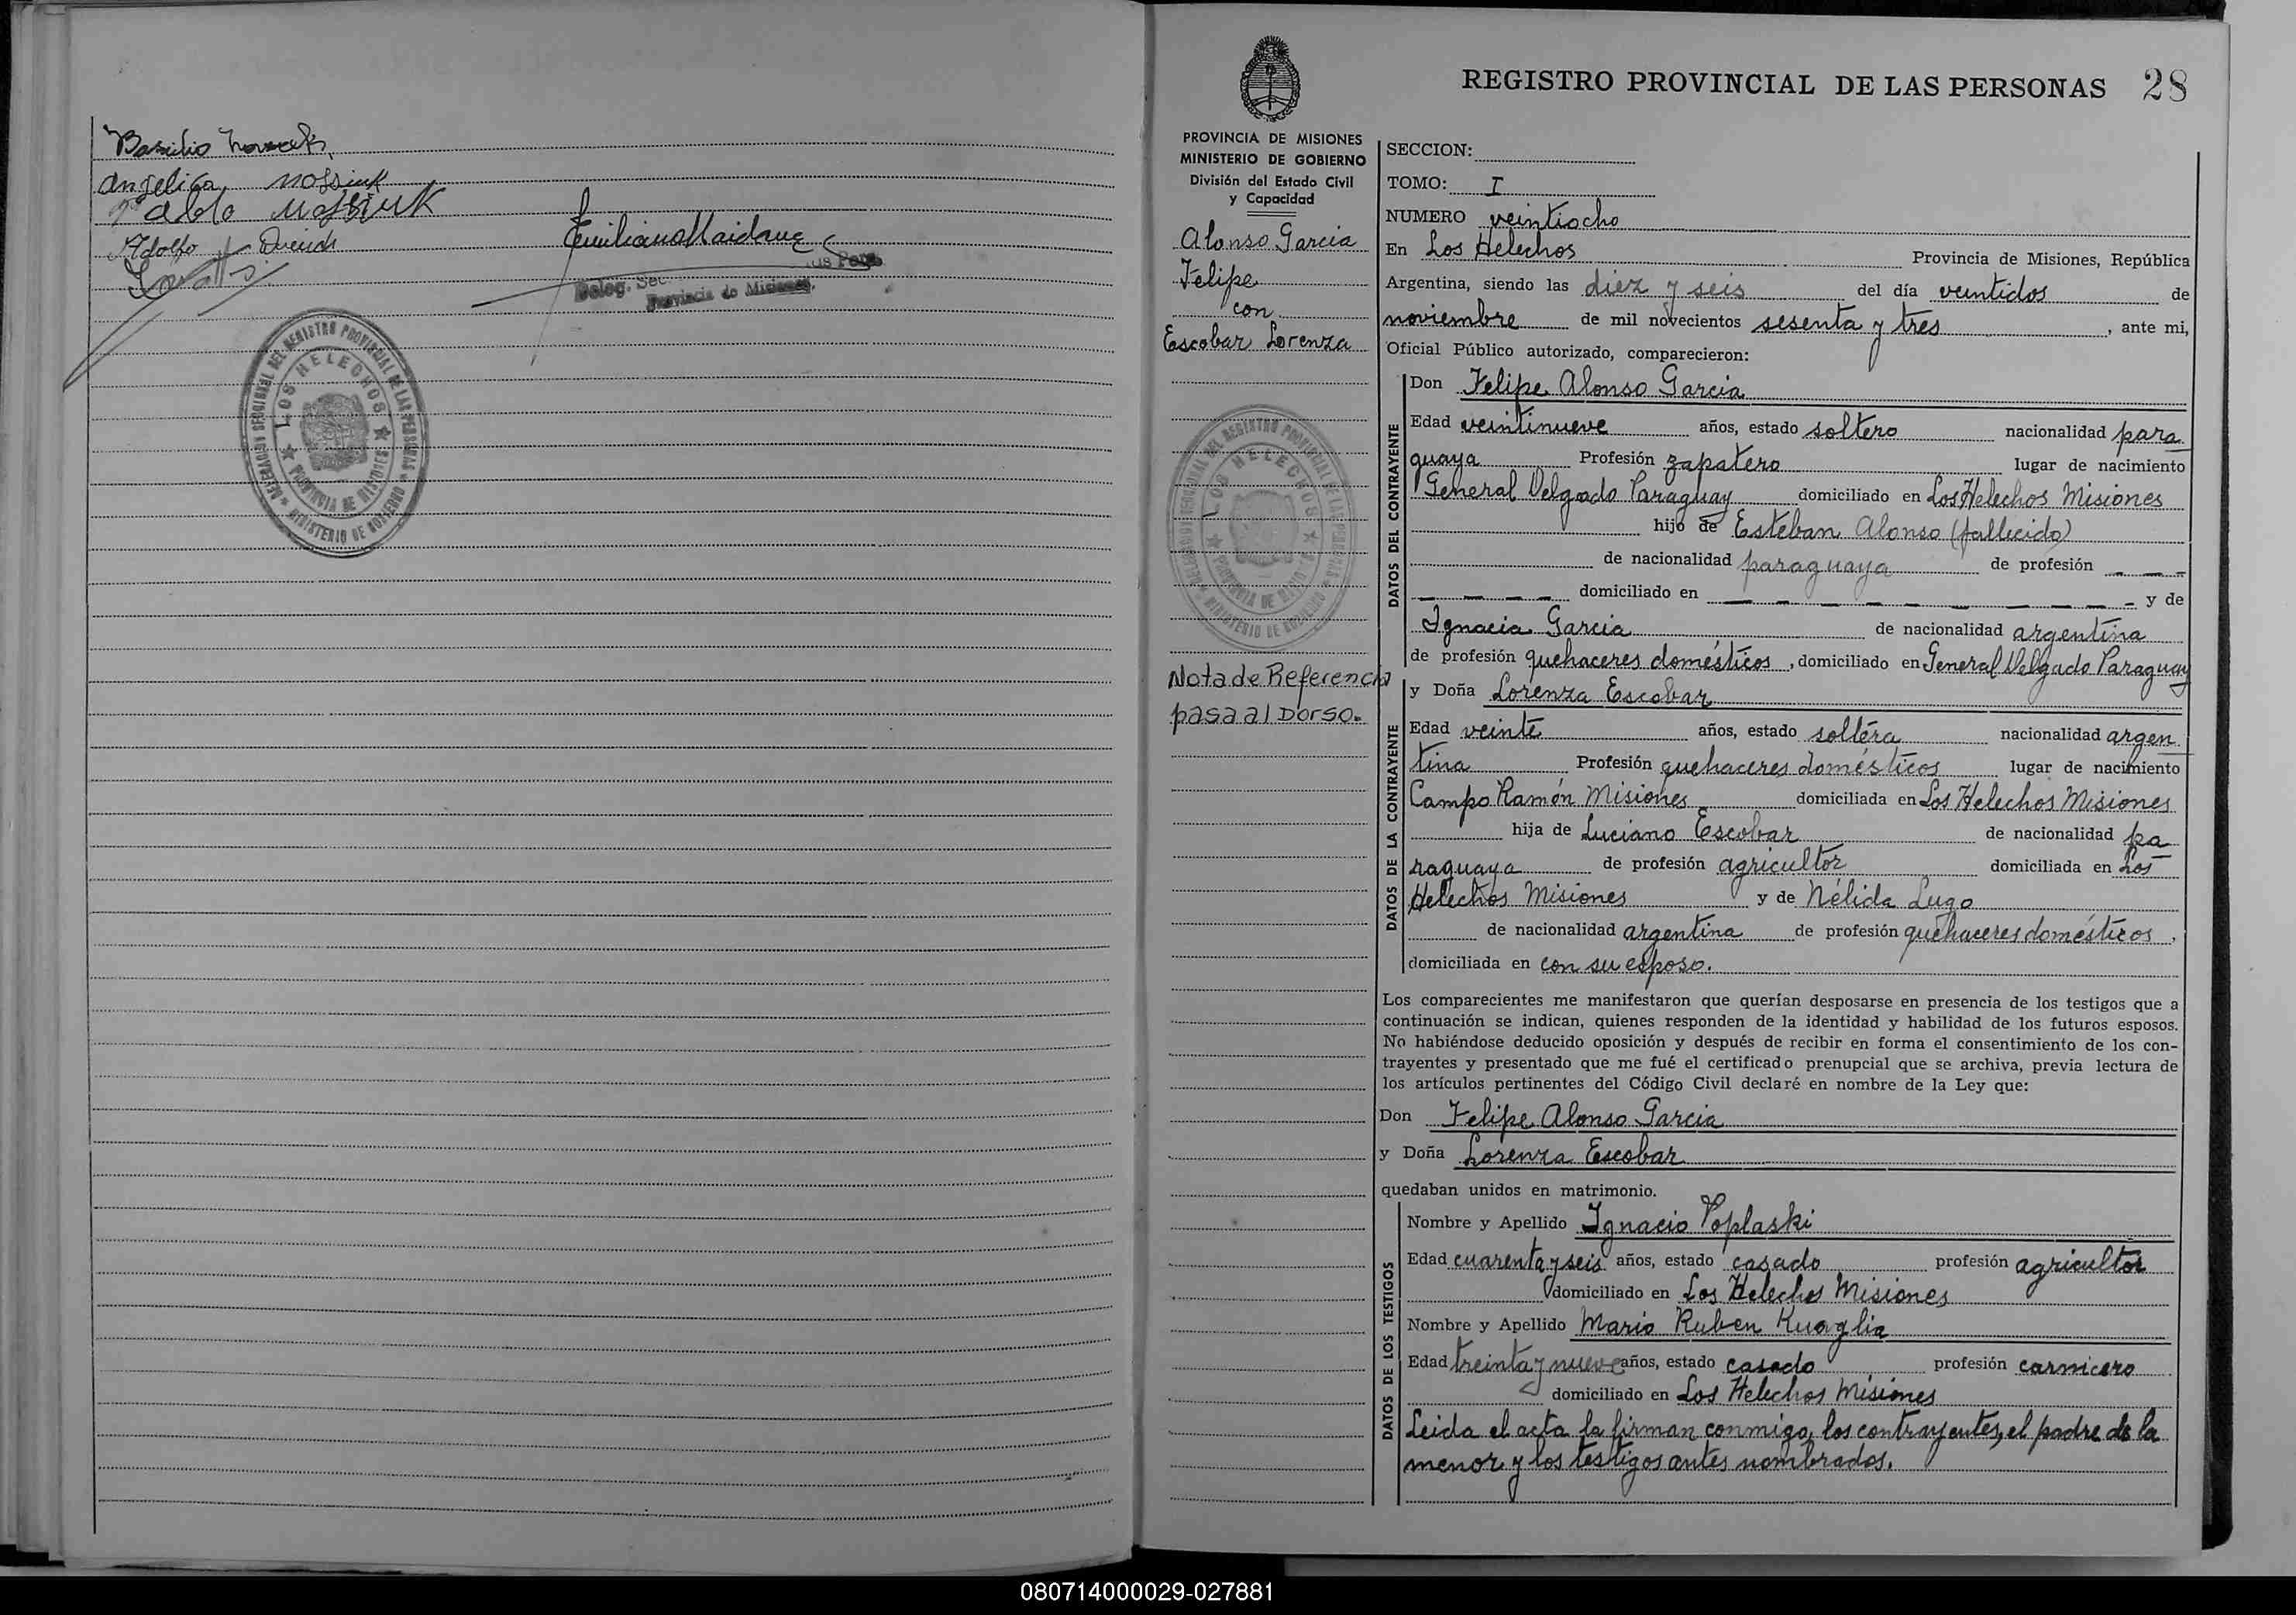 Basilio
Angelica
Pablo
Adolfo
Emiliano Maidana
Deleg. Sec.
Provincia de Misiones.
DELEGADO SECCIONAL DEL REGISTRO PROVINCIAL DE LAS PERSONAS
LOS HELECHOS
PROVINCIA DE MISIONES
MINISTERIO DE GOBIERNO
REGISTRO PROVINCIAL DE LAS PERSONAS 28
PROVINCIA DE MISIONES
MINISTERIO DE GOBIERNO
División del Estado Civil
y Capacidad
Alonso Garcia
Felipe
con
Escobar Lorenza
LOS HELECHOS
Nota de Referencia
pasa al Dorso.
SECCION:
TOMO: I
NUMERO veintiocho
En Los Helechos Provincia de Misiones, República
Argentina, siendo las diez y seis del día veintidos de
noviembre de mil novecientos sesenta y tres, ante mi,
Oficial Público autorizado, comparecieron:
DATOS DEL CONTRAYENTE
Don Felipe Alonso Garcia
Edad veintinueve años, estado soltero nacionalidad para
guaya Profesión zapatero lugar de nacimiento
General Delgado Paraguay domiciliado en Los Helechos Misiones
hijo de Esteban Alonso (fallecido)
de nacionalidad paraguaya de profesión - - -
- - - - domiciliado en - - - - - - - - - - y de
Ignacia Garcia de nacionalidad argentina
de profesión quehaceres domésticos, domiciliado en General Delgado Paraguay
DATOS DE LA CONTRAYENTE
y Doña Lorenza Escobar
Edad veinte años, estado soltera nacionalidad argen
tina Profesión quehaceres domésticos lugar de nacimiento
Campo Ramón Misiones domiciliada en Los Helechos Misiones
hija de Luciano Escobar de nacionalidad pa
raguaya de profesión agricultor domiciliada en Los
Helechos Misiones y de Nélida Lugo
de nacionalidad argentina de profesión quehaceres domésticos,
domiciliada en con su esposo.
Los comparecientes me manifestaron que querían desposarse en presencia de los testigos que a
continuación se indican, quienes responden de la identidad y habilidad de los futuros esposos.
No habiéndose deducido oposición y después de recibir en forma el consentimiento de los con-
trayentes y presentado que me fué el certificado prenupcial que se archiva, previa lectura de
los artículos pertinentes del Código Civil declaré en nombre de la Ley que:
Don Felipe Alonso Garcia
y Doña Lorenza Escobar
quedaban unidos en matrimonio.
DATOS DE LOS TESTIGOS
Nombre y Apellido Ignacio Poplaski
Edad cuarenta y seis años, estado casado profesión agricultor
domiciliado en Los Helechos Misiones
Nombre y Apellido Mario Ruben Kuaglia
Edad treinta y nueve años, estado casado profesión carnicero
domiciliado en Los Helechos Misiones
Leida el acta la firman conmigo, los contrayentes, el padre de la
menor y los testigos antes nombrados.
080714000029-027881